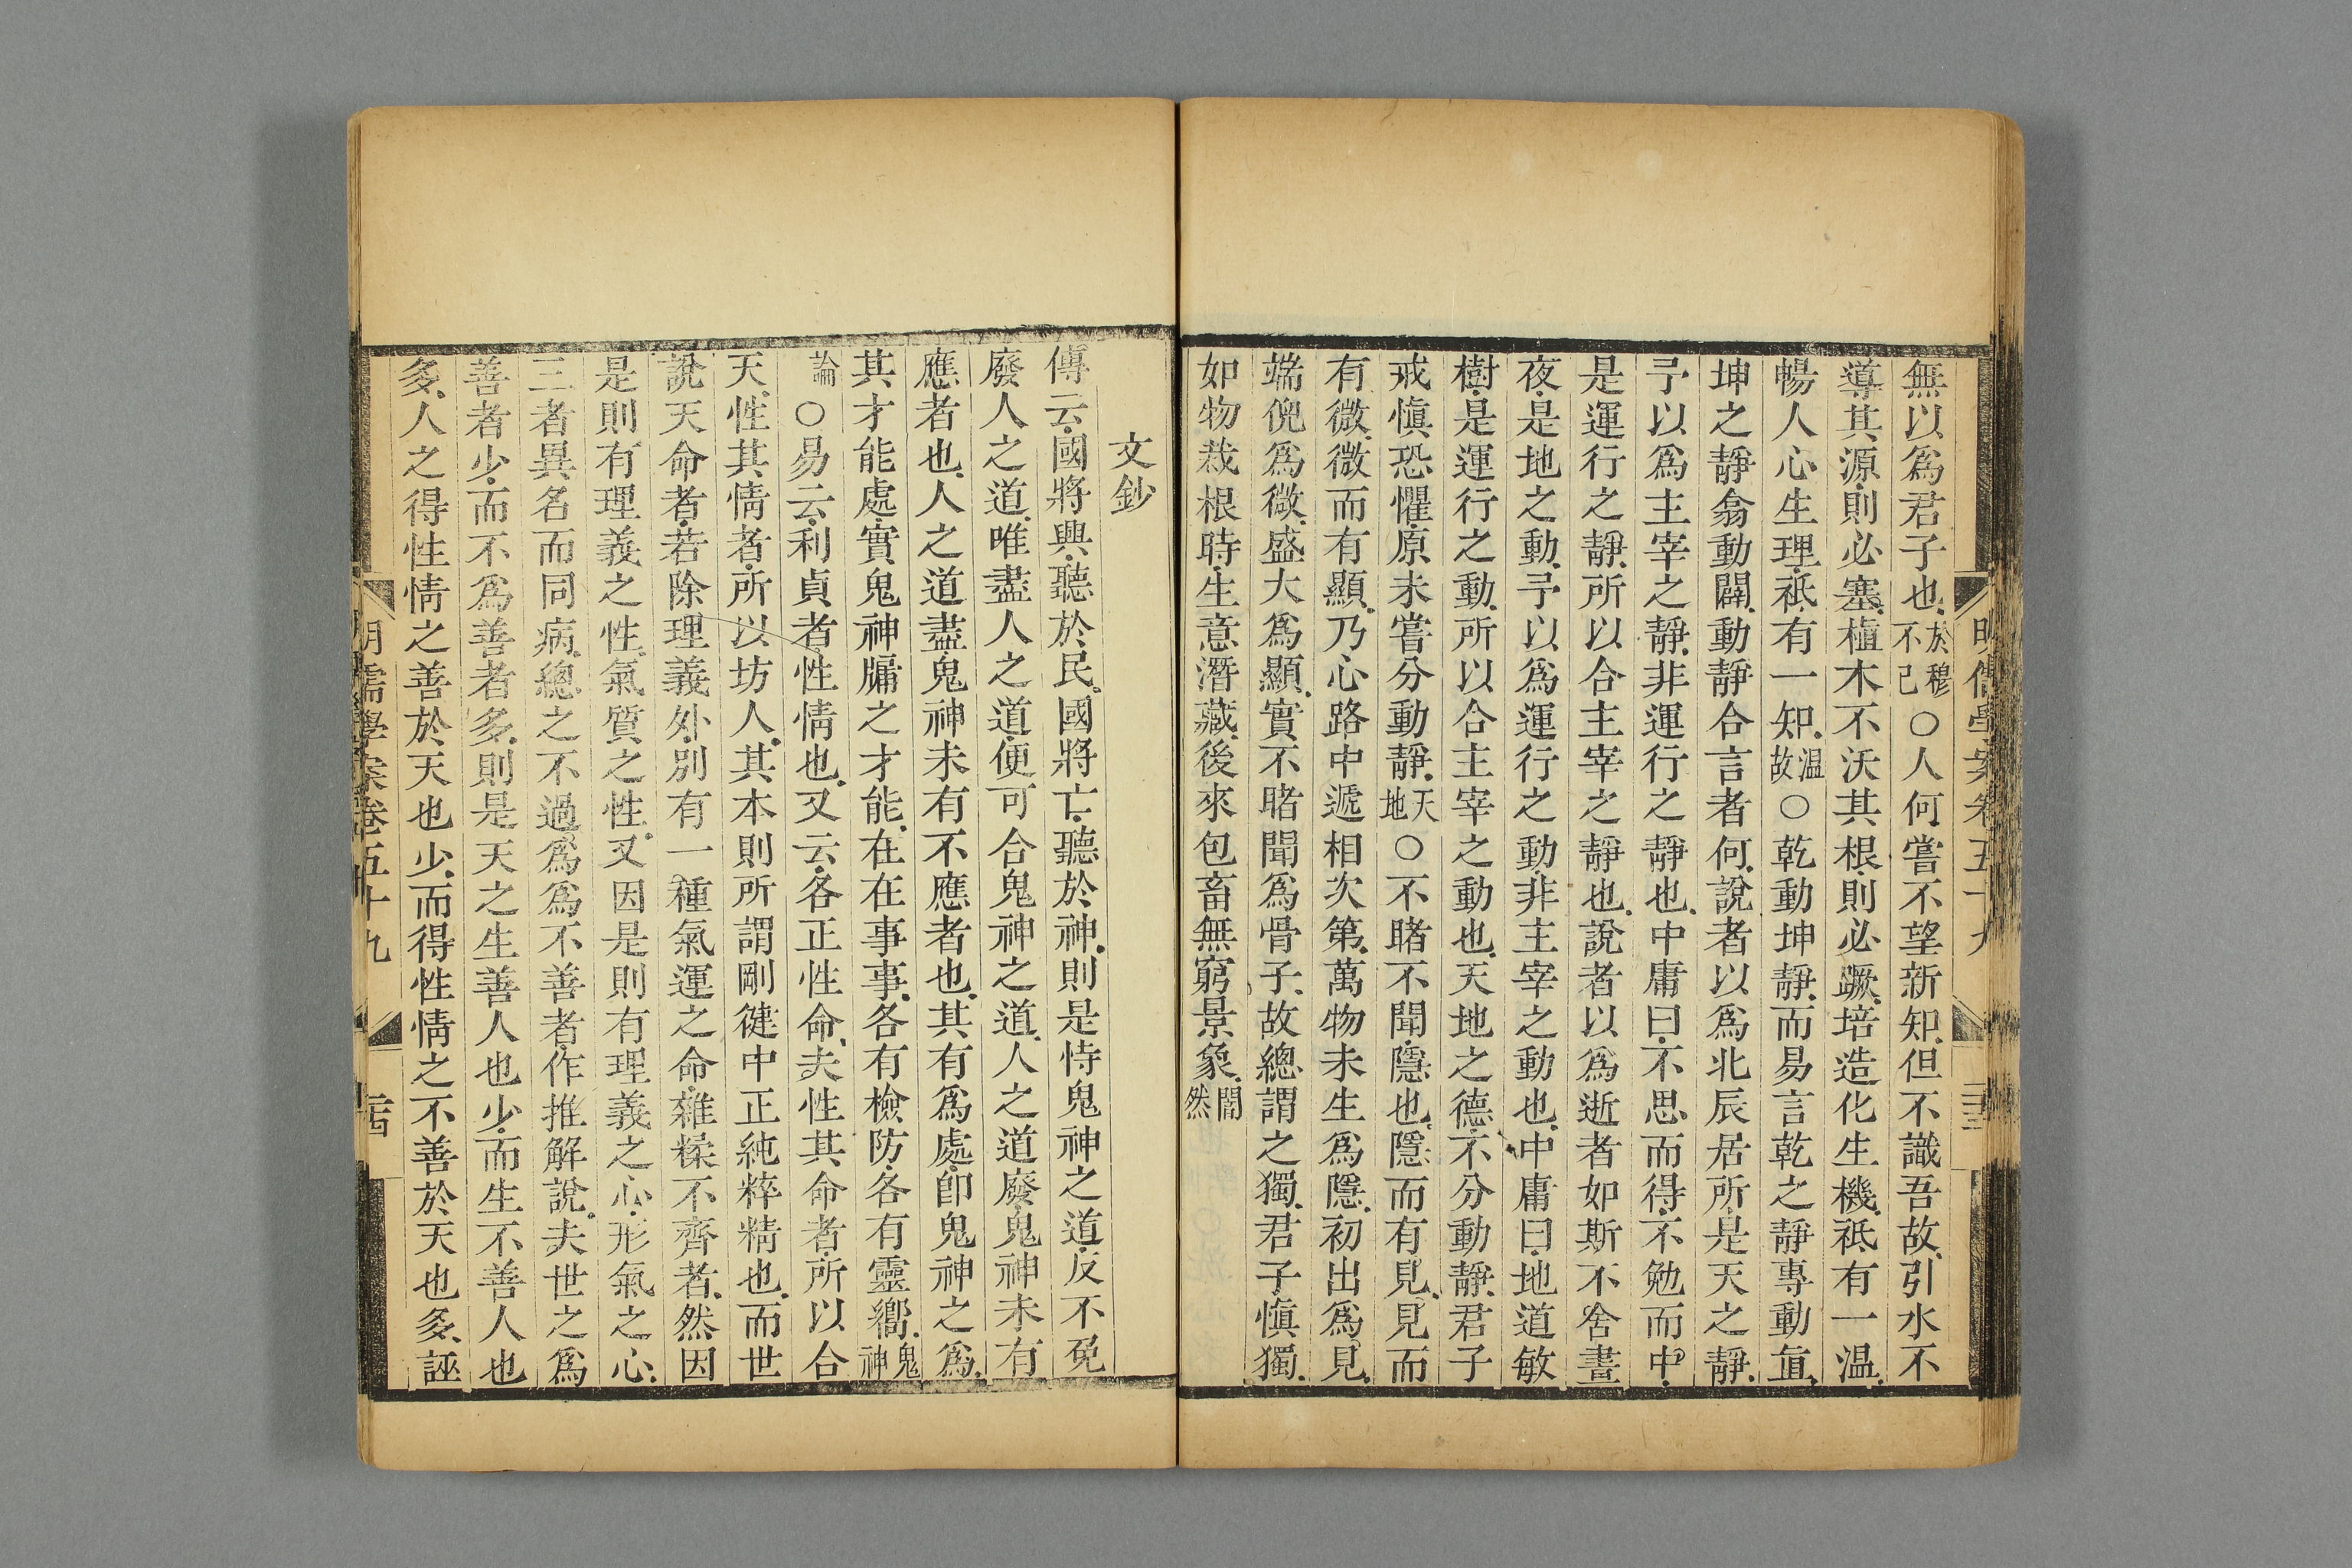 明儒學案卷五十九
無以爲君子也於穆不已○人何嘗不望新知但不識吾故引水不
導其源則必塞植木不沃其根則必蹶培造化生機祇有一温
暢人心生理祇有一知温故○乾動坤靜而易言乾之靜專動直
坤之靜翕動闢動靜合言者何說者以爲北辰居所是天之靜
予以爲主宰之靜非運行之靜也中庸曰不思而得不勉而中
是運行之靜所以合主宰之靜也說者以爲逝者如斯不舍晝
夜是地之動予以爲運行之動非主宰之動也中庸曰地道敏
樹是運行之動所以合主宰之動也天地之德不分動靜君子
戒愼恐懼原未嘗分動靜天地○不睹不聞隱也隱而有見見而
有微微而有顯乃心路中遞相次第萬物未生爲隱初出爲見
端倪爲微盛大爲顯實不睹聞爲骨子故總謂之獨君子愼獨
如物栽根時生意潛藏後來包畜無窮景象闇然
文鈔
傳云國將興聽於民國將亡聽於神則是恃鬼神之道反不免
廢人之道唯盡人之道便可合鬼神之道人之道廢鬼神未有
應者也人之道盡鬼神未有不應者也其有爲處卽鬼神之爲
其才能處實鬼神牖之才能在在事事各有檢防各有靈嚮鬼神
論○易云利貞者性情也又云各正性命夫性其命者所以合
天性其情者所以坊人其本則所謂剛健中正純粹精也而世
說天命者若除理義外別有一種氣運之命雜糅不齊者然因
是則有理義之性氣質之性又因是則有理義之心形氣之心
三者異名而同病總之不過爲爲不善者作推解說夫世之爲
善者少而不爲善者多則是天之生善人也少而生不善人也
多人之得性情之善於天也少而得性情之不善於天也多誣
明儒學案卷五十九
二十四